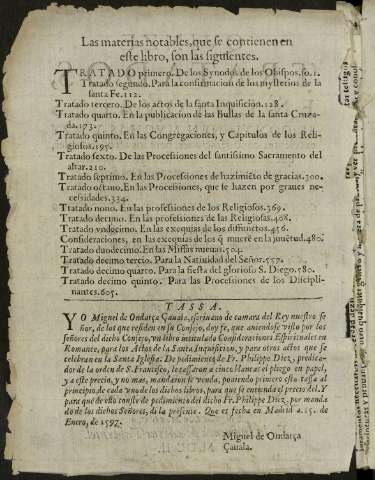 Las materias notables, que se contienen en
este libro, son las siguientes.
TRATADO primero. De los Synodos de los Obispos. fo. 1.
Tratado segundo. Para la confirmacion de los mysterios de la
santa Fe. 112.
Tratado tercero. De los actos de la santa Inquisicion. 128.
Tratado quarto. En la publicacion de las Bullas de la santa Cruza-
da. 173.
Tratado quinto. En las Congregaciones, y Capitulos de los Reli-
giosos. 195.
Tratado sexto. De las Processiones del santissimo Sacramento del
altar. 210.
Tratado septimo. En las Processiones de hazimiẽto de gracias. 300.
Tratado octauo. En las Processiones, que se hazen por graues ne-
cessidades. 334.
Tratado nono. En las professiones de los Religiosos. 369.
Tratado decimo. En las professiones de las Religiosas. 408.
Tratado vndecimo. En las exequias de los diffunctos. 456.
Consideraciones, en las exequias de los q̃ muerẽ en la juuẽtud. 480.
Tratado duodecimo. En las Missas nueuas. 504.
Tratado decimo tercio. Para la Natiuidad del Señor. 557.
Tratado decimo quarto. Para la fiesta del glorioso S. Diego. 580.
Tratado decimo quinto. Para las Processiones de los Discipli-
nantes. 605.
TASSA.
YO Miguel de Ondarça Çauala, escriuano de camara del Rey nuestro se
ñor, de los que residen en su Consejo, doy fe, que auiendose visto por los
señores del dicho Consejo, vn libro intitulado Consideraciones Espirituales en
Romance, para los Actos de la Santa Inquisicion, y para otros actos que se
celebran en la Santa Iglesia: De pedimiento de Fr. Philippe Diez, predica-
dor de la orden de S. Francisco, le tassaron a cinco blancas el pliego en papel,
y a este precio, y no mas, mandaron se venda, poniendo primero esta tassa al
principio de cada vno de los dichos libros, para que se entienda el precio del. Y
para que de ello conste de pedimiento del dicho Fr. Philippe Diez, por manda
do de los dichos Señores, di la presente. Que es fecha en Madrid a 15. de
Enero, de 1597.
Miguel de Ondarça
Çauala.